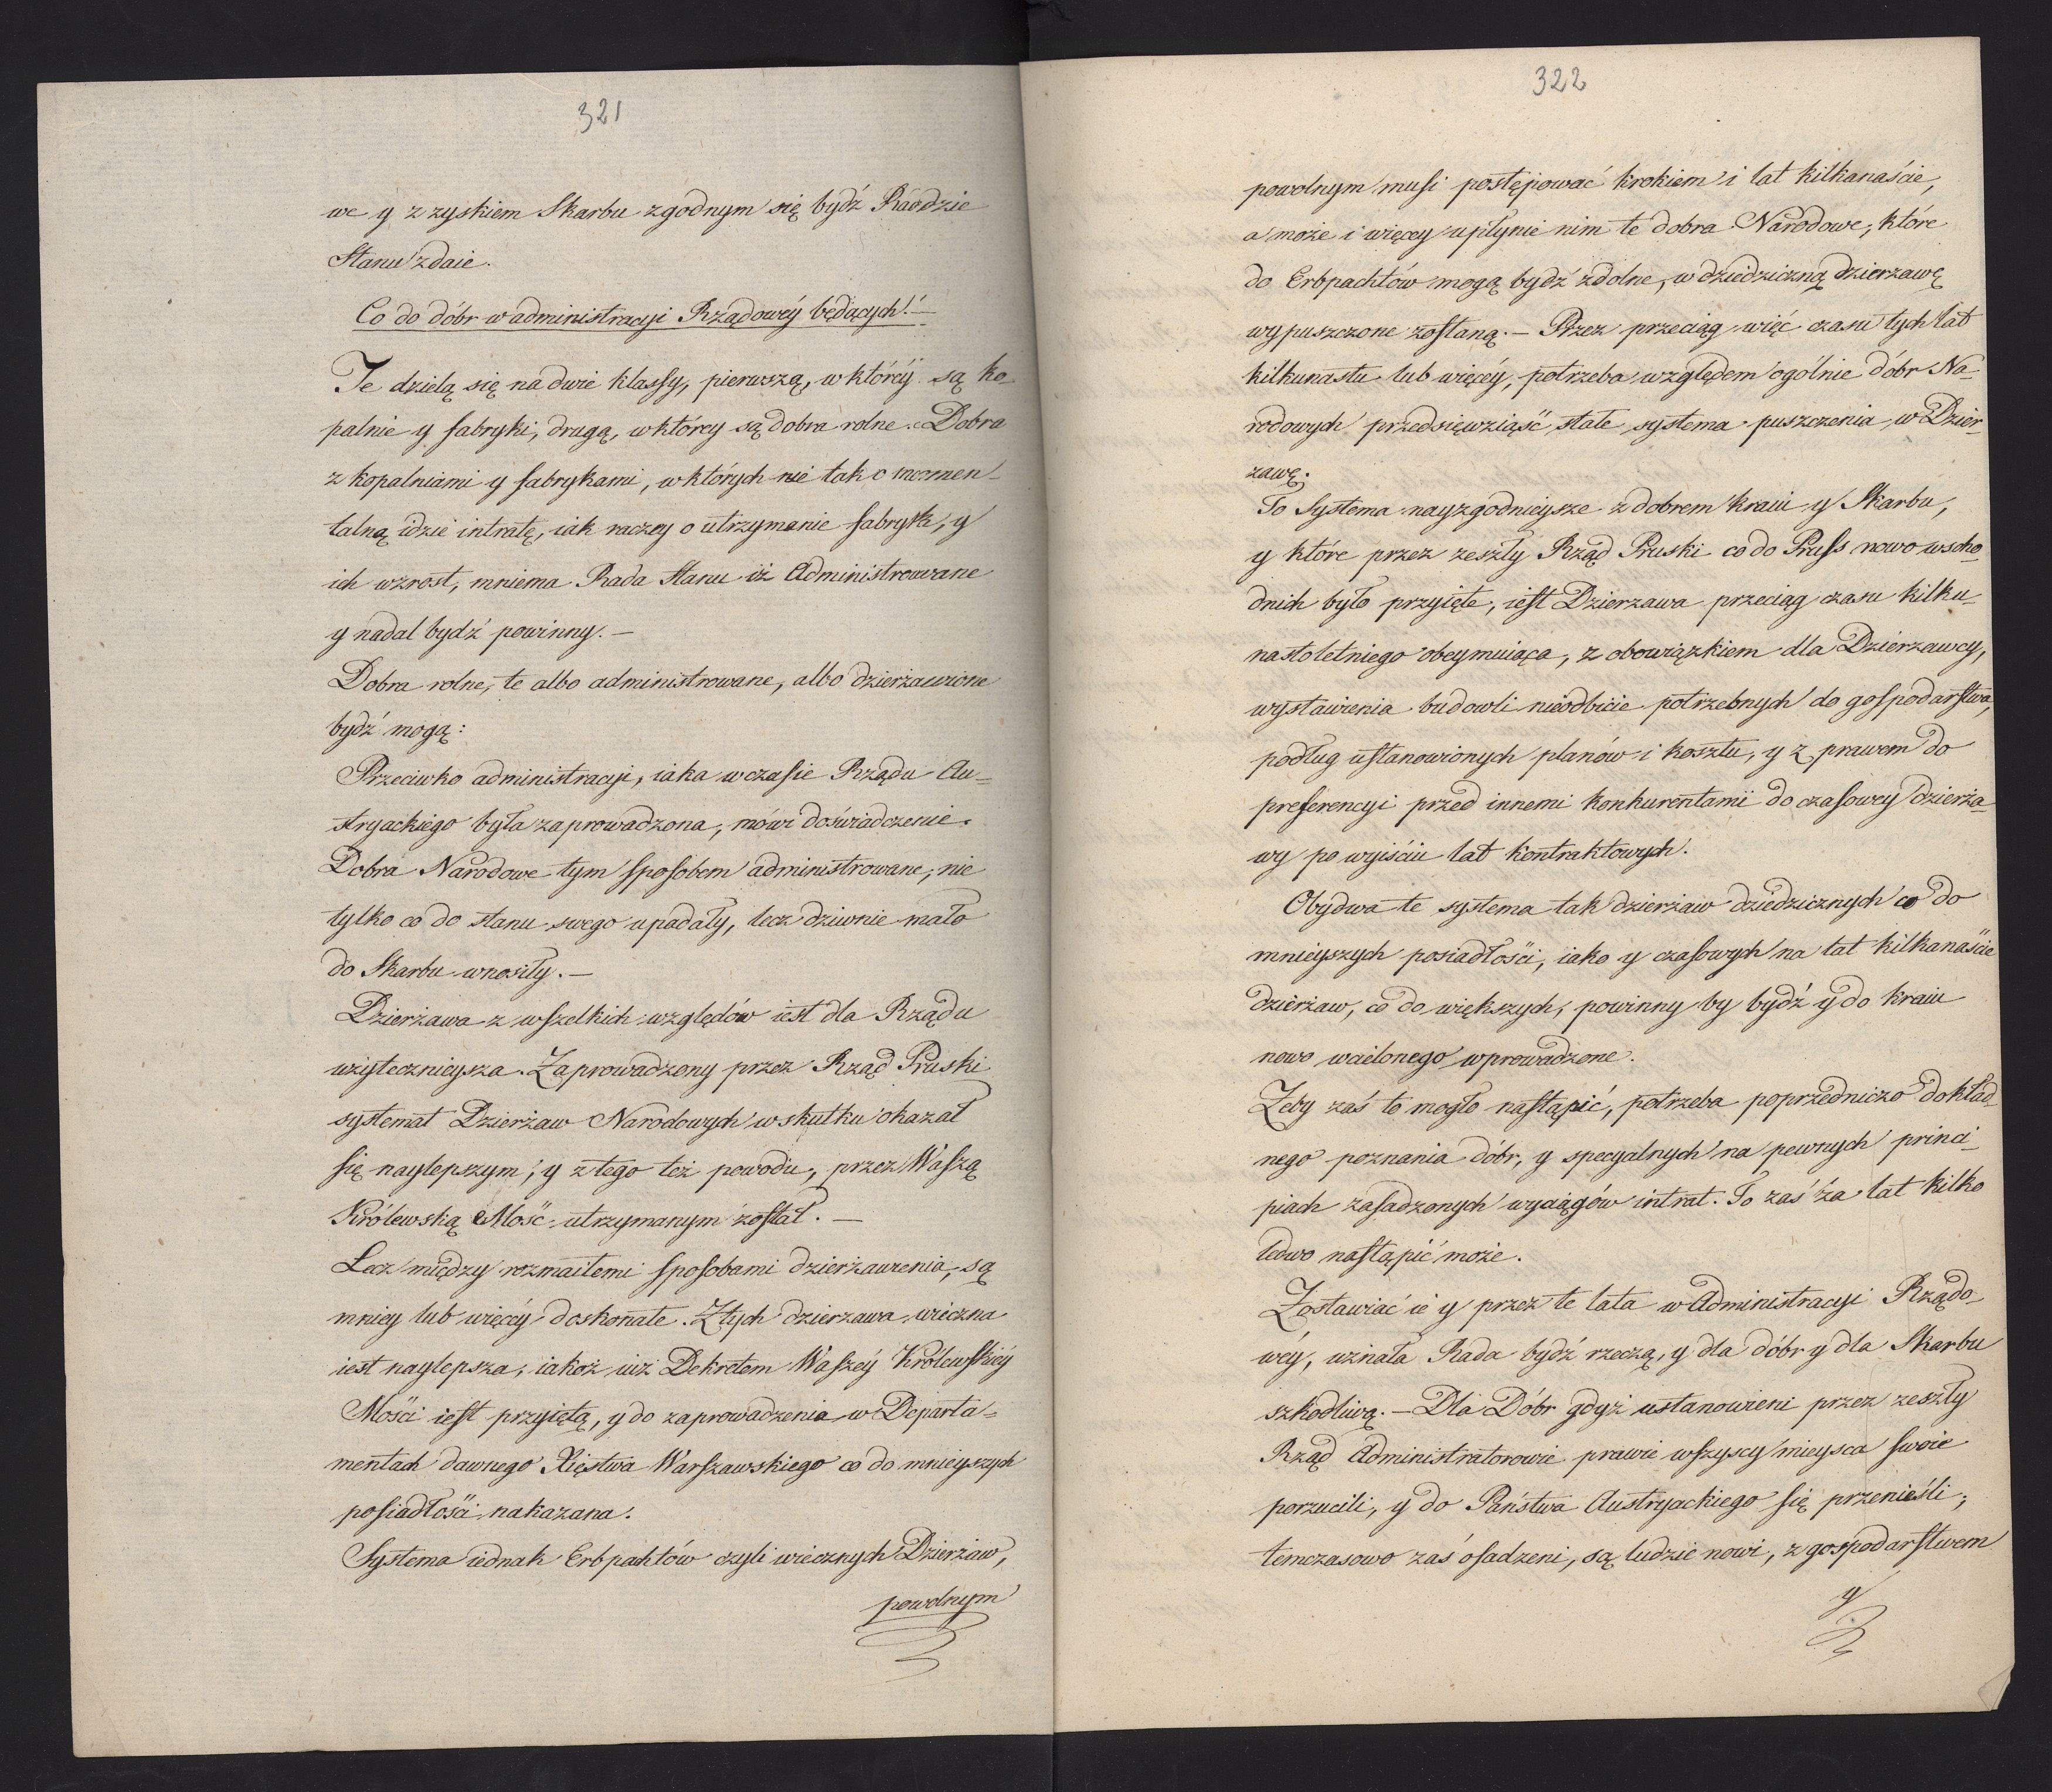 321
we y z zyskiem Skarbu zgodnym się bydź Radzie
Stanu zdaie.
Co do dóbr w administracyi Rządowéy będących!—
Te dzielą się na dwie klassy, pierwszą, w któréy są ko
palnie y fabryki, drugą, w którey są dobra rolne. Dobra
z kopalniami y fabrykami, w których nie tak o momen-
talną idzie intratę, iak raczey o utrzymanie fabryk, y
ich wzrost, mniema Rada Stanu iż Administrowane
y nadal bydź powinny.—
Dobra rolne, te albo administrowane, albo dzierżawione
bydź mogą:
Przeciwko administracyi, iaka w czasie Rządu Au=
stryackiego była zaprowadzona, mówi doświadczenie.
Dobra Narodowe tym sposobem administrowane, nie
tylko co do stanu swego upadały, lecz dziwnie mało
do Skarbu wnosiły.—
Dzierżawa z wszelkich względów iest dla Rządu
użytecznieysza. Zaprowadzony przez Rząd Pruski
systemat Dzierżaw Narodowych w skutku okazał
się naylepszym, y z tego też powodu, przez Waszą
Królewską Mość utrzymanym został.—
Lecz między rozmaitemi sposobami dzierżawienia, są
mniey lub więcéy doskonałe. Z tych dzierzawa wieczna
iest naylepsza, iakoż iuż Dekretem Waszéy Królewskiéy
Mości iest przyiętą, y do zaprowadzenia w Departa=
mentach dawnego Xięstwa Warszawskiego co do mnieyszych
posiadłości nakazana.
Systema iednak Erbpachtów czyli wiecznych Dzierżaw,
powolnym
322
powolnym musi postępować krokiem i lat kilkanaście,
a może i więcey upłynie nim te dobra Narodowe, które
do Erbpachtów mogą bydź zdolne, w dziedziczną dzierzawę
wypuszczone zostaną.— Przez przeciąg więc czasu tych lat
kilkunastu lub więcéy, potrzeba względem ogólnie dóbr Na-
rodowych przedsięwziąść stałe systema puszczenia w Dzier-
zawę.
To Systema nayzgodnieysze z dobrem kraiu y Skarbu,
y które przez zeszły Rząd Pruski co do Pruss nowo wscho-
dnich było przyięte, iest Dzierzawa przeciąg czasu kilku-
nastoletniego obeymuiąca, z obowiązkiem dla Dzierzawcy,
wystawienia budowli nieodbicie potrzebnych do gospodarstwa,
podług ustanowionych planów i kosztu, y z prawem do
preferencyi przed innemi konkurentami do czasowey dzierża-
wy po wyiściu lat kontraktowych.
Obydwa te systema tak dzierżaw dziedzicznych co do
mnieyszych posiadłości, iako y czasowych na lat kilkanaście
dzierżaw, co do większych, powinny by bydź y do kraiu
nowo wcielonego wprowadzone.
Zeby zaś to mogło nastąpić, potrzeba poprzedniczo dokład-
nego poznania dóbr, y specyalnych na pewnych princi-
piach zasadzonych wyciągów intrat. To zaś za lat kilko
ledwo nastąpić może.
Zostawiać ie y przez te lata w Administracyi Rządo-
wéy, uznała Rada bydź rzeczą, y dla dóbr y dla Skarbu
szkodliwą.— Dla Dóbr gdyż ustanowieni przez zeszły
Rząd Administratorowie prawie wszyscy mieysca swoie
porzucili, y do Państwa Austryackiego się przenieśli,
temczasowo zaś osadzeni, są ludzie nowi, z gospodarstwem
y